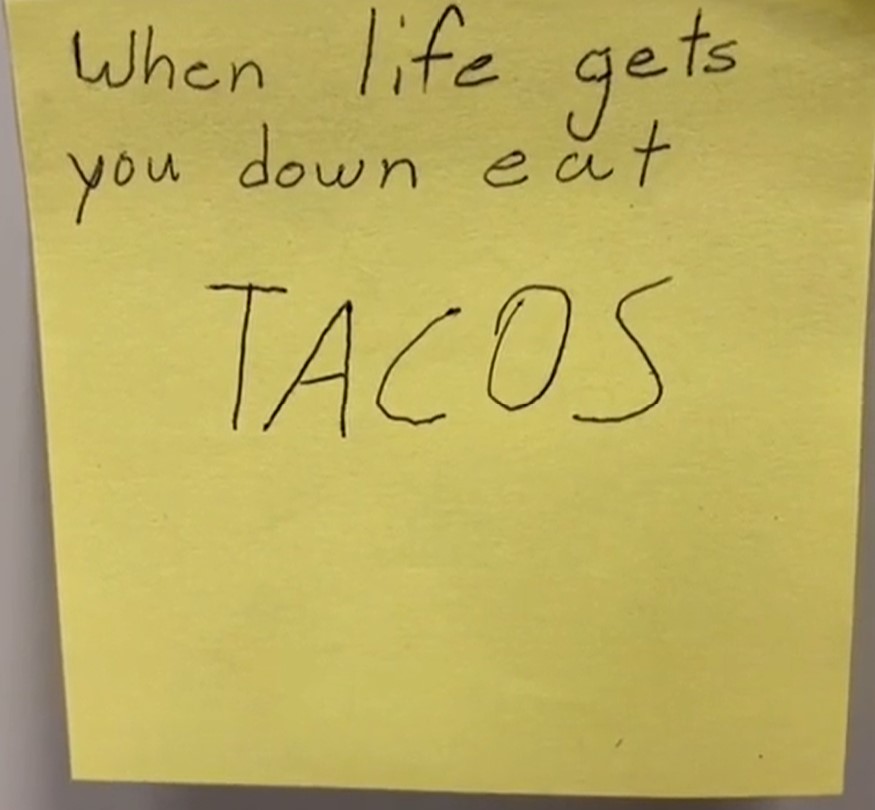 When life gets
you down eat
TACOS